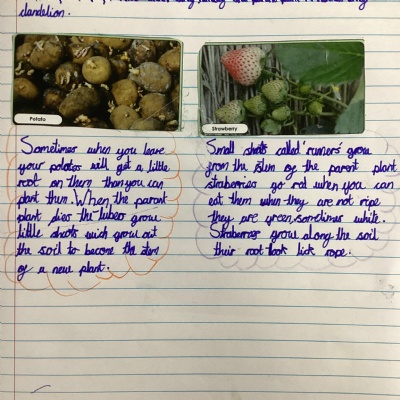 dandelion.
Potato
Strawberry
Sometimes when you leave
your potatos will get a little
root on them then you can
plant them. When the parent
plant dies the tuber grow
little shoots wich grow out
the soil to become the stem
of a new plant.
Small shoots called 'runners' grow
from the stem of the parent plant
straberries go red when you can
eat them when they are not ripe
they are green, sometimes white.
Straberries grow along the soil
their root look lick rope.